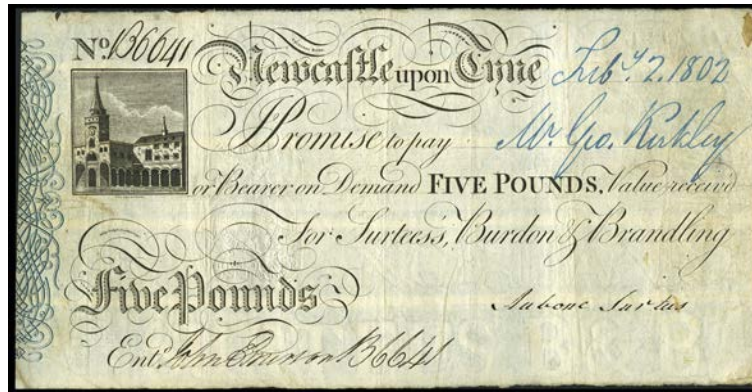 No. B6641 Newcastle upon Tyne Feby. 2. 1802
I Promise to pay Mr. Geo. Kirkley
or Bearer on Demand FIVE POUNDS, Value received
For Surtees's, Burdon & Brandling
Five Pounds
Aubone Surtees
Entd. John B6641